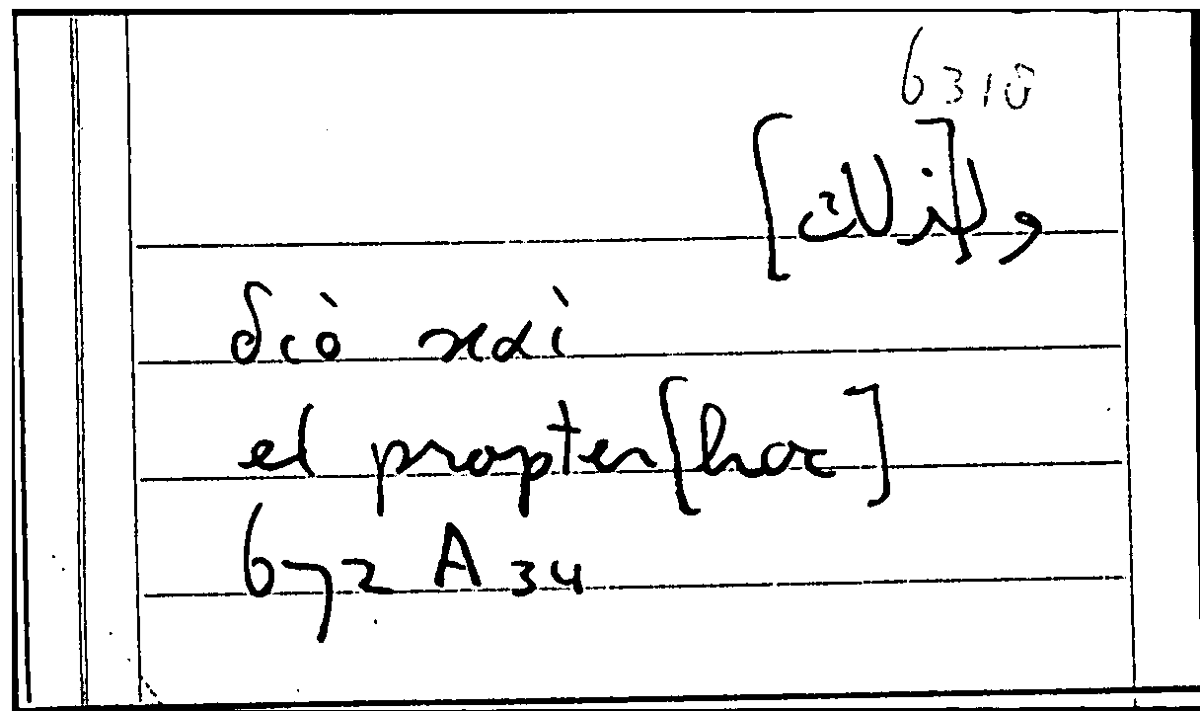 6310
ول[ذلك]
διὸ καὶ
et propter[hoc]
672 A 34